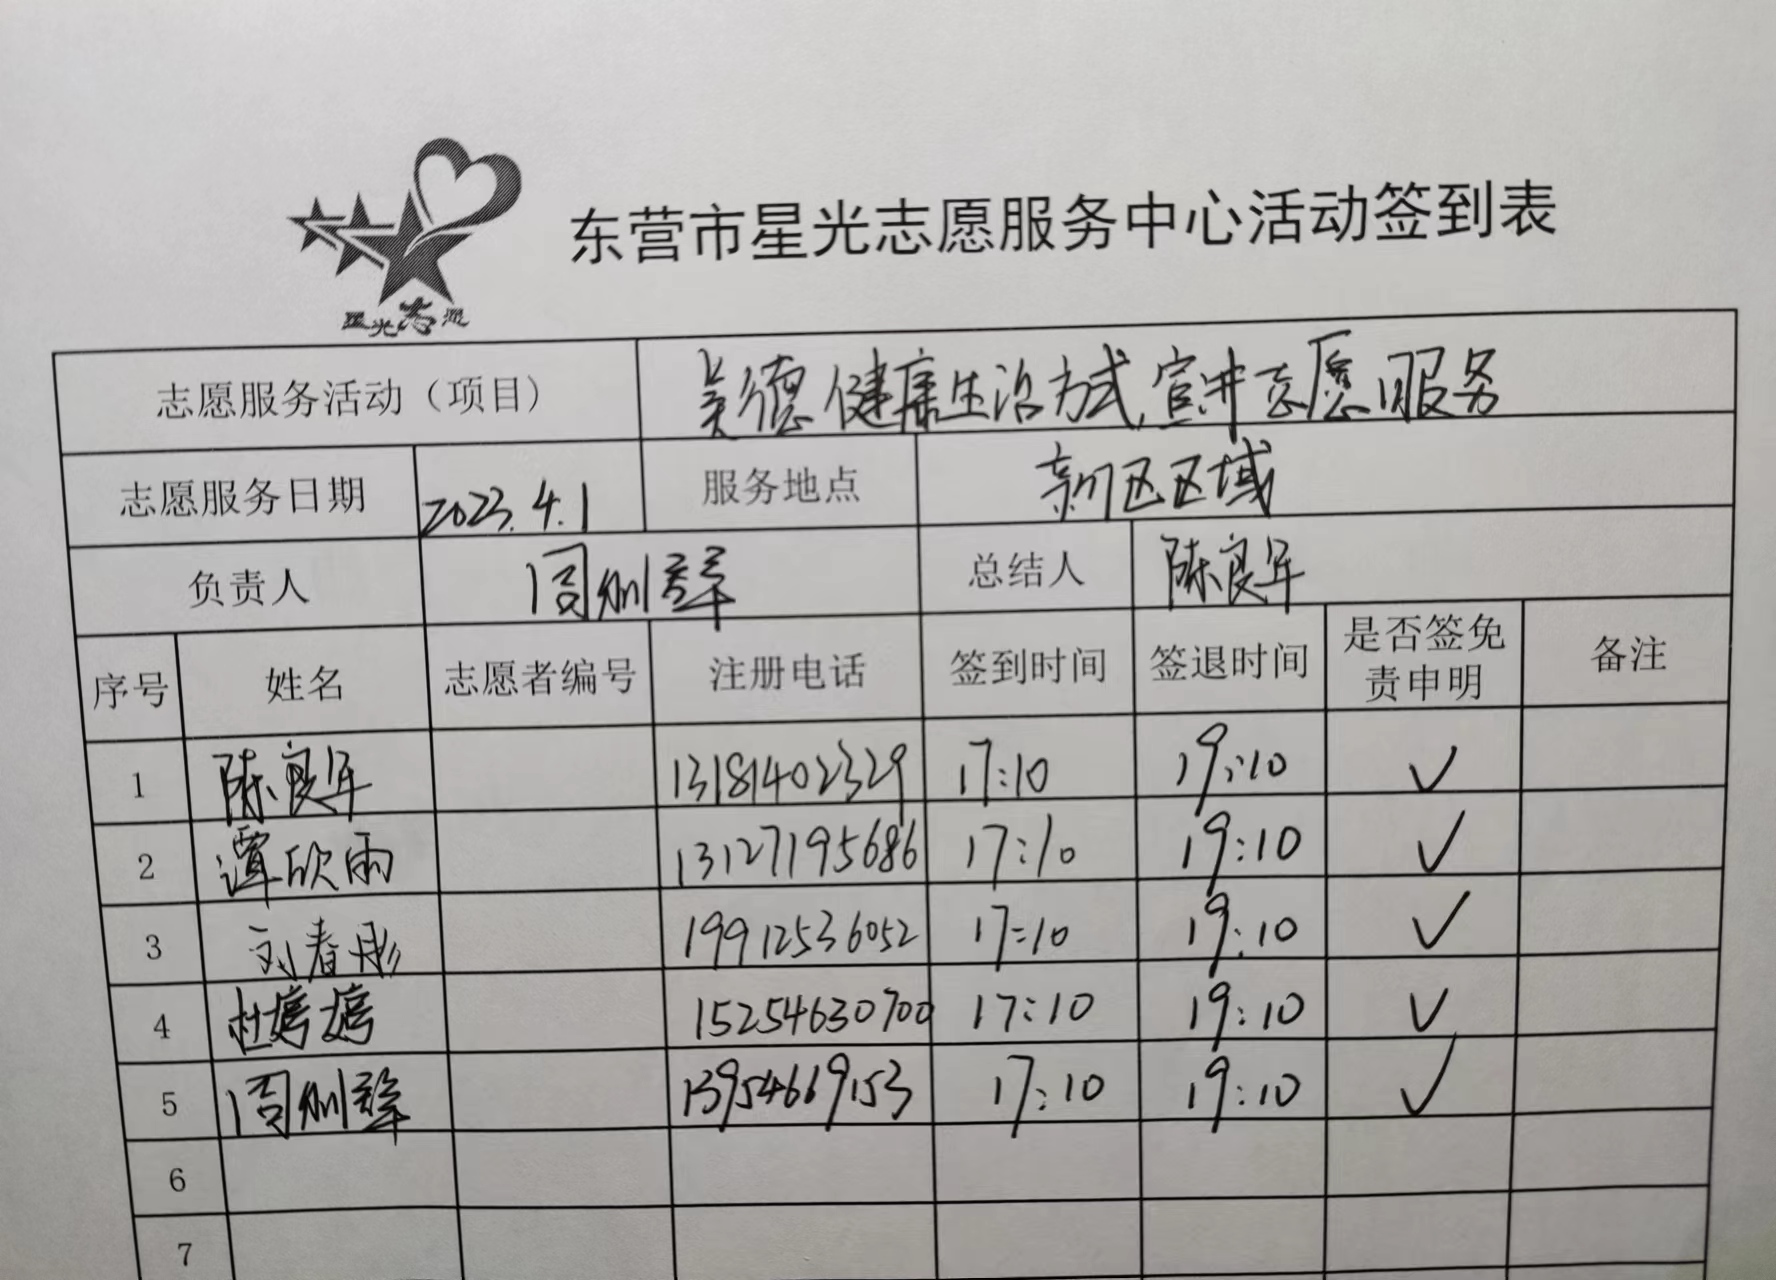 星光志愿
东营市星光志愿服务中心活动签到表
志愿服务活动（项目） 美德健康生活方式,宣讲志愿服务
志愿服务日期 2023.4.1 服务地点 东川区区域
负责人 周 总结人 陈良军
序号 姓名 志愿者编号 注册电话 签到时间 签退时间 是否签免责申明 备注
1 陈良军 13181402329 17:10 19:10 ✓
2 谭欣雨 13127195686 17:10 19:10 ✓
3 刘春彤 19912536052 17:10 19:10 ✓
4 杜婷婷 15254630700 17:10 19:10 ✓
5 周 13954669153 17:10 19:10 ✓
6
7